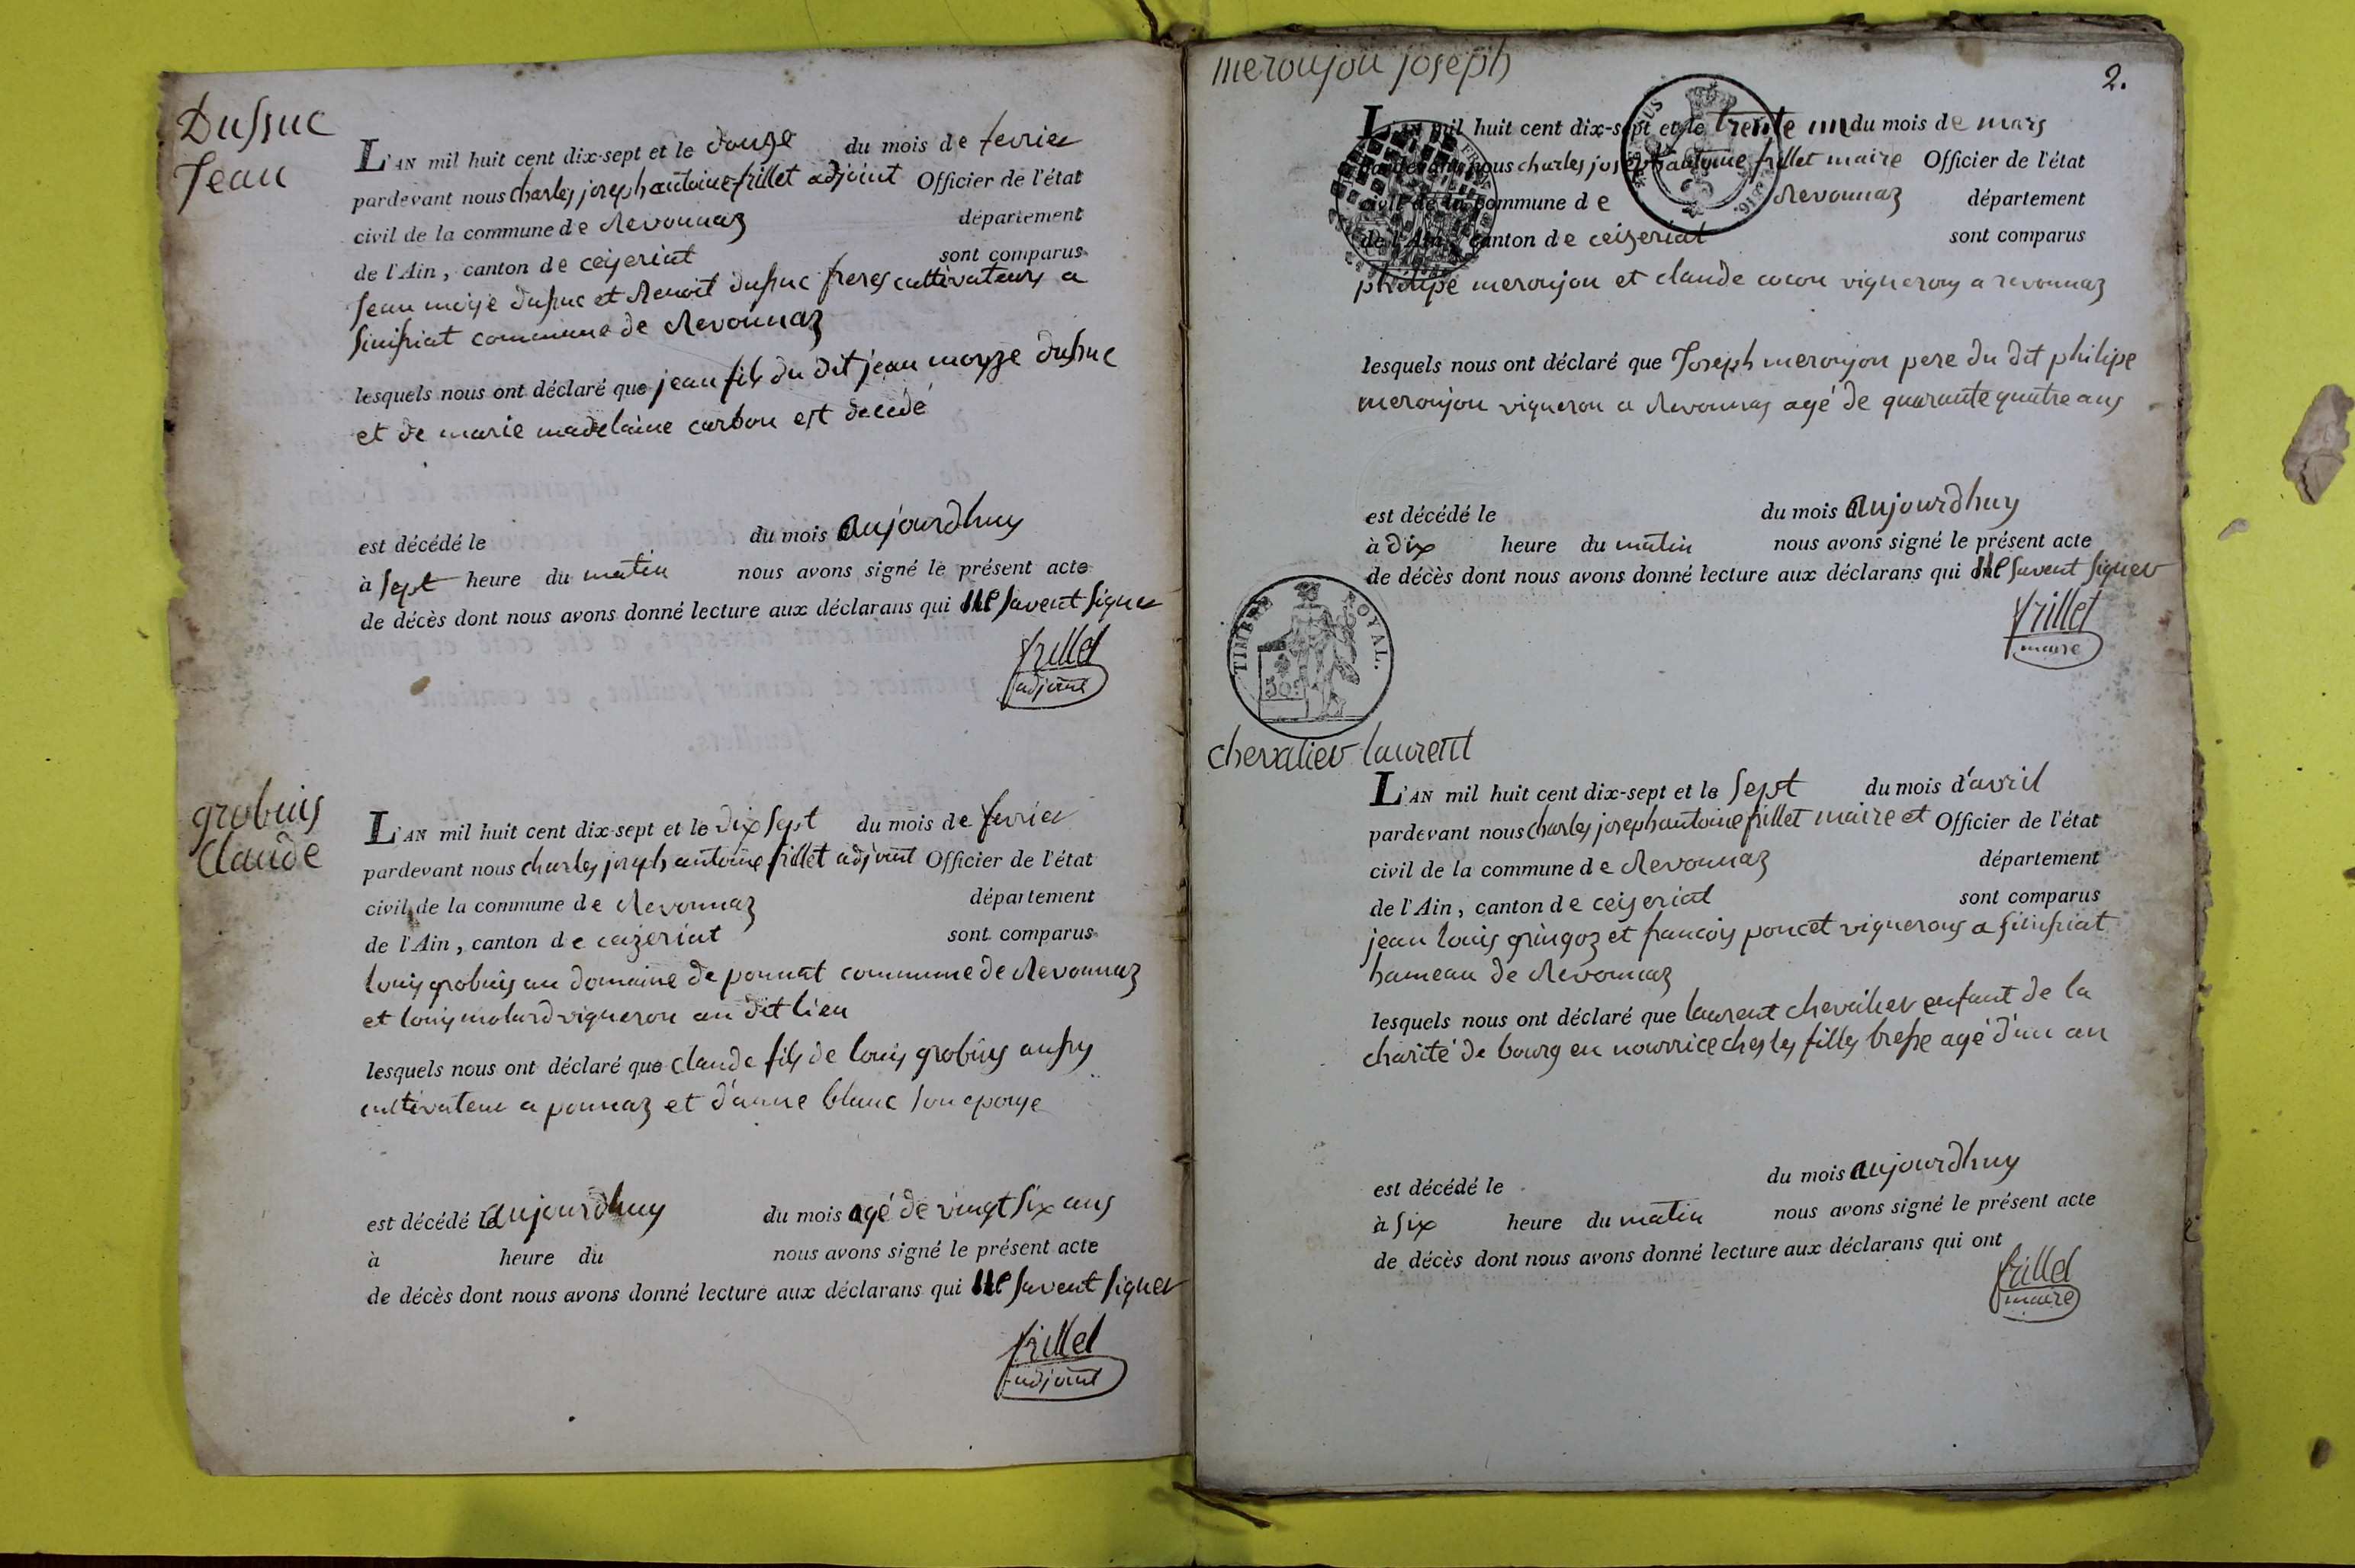 Dussuc
Jean
L'AN mil huit cent dix-sept et le douze du mois de fevrier
pardevant nous charles joseph antoine frillet adjoint Officier de l'état
civil de la commune de Revonnaz département
de l'Ain, canton de ceyzeriat sont comparus
Jean moyse dussuc et Benoit dussuc freres cultivateurs a
Sinissiat commune de Revonnaz
lesquels nous ont déclaré que jean fils du dit jean moyze dussuc
et de marie madelaine carbon est decedé
est décédé le du mois aujourdhuy
à sept heure du matin nous avons signé le présent acte
de décès dont nous avons donné lecture aux déclarans qui ne savent signer
frillet
adjoint
grobuis
Claude
L'AN mil huit cent dix-sept et le dix sept du mois de fevrier
pardevant nous charles joseph antoine frillet adjoint Officier de l'état
civil de la commune de Revonnaz département
de l'Ain, canton de ceizeriat sont comparus
louis grobuis au domaine de ponnat commune de Revonnaz
et louis molard vigneron au dit lieu
lesquels nous ont déclaré que claude fils de louis grobuis aussy
cultivateur a ponnaz et d'anne blanc son epouse
est décédé le aujourdhuy du mois agé de vingt six ans
à heure du nous avons signé le présent acte
de décès dont nous avons donné lecture aux déclarans qui ne savent signer
frillet
adjoint
meroujou joseph
2.
L'AN mil huit cent dix-sept et le trente un du mois de mars
pardevant nous charles joseph antoine frillet maire Officier de l'état
civil de la commune de Revonnaz département
de l'Ain, canton de ceizeriat sont comparus
philipe meroujou et claude cocou vignerons a revonnaz
lesquels nous ont déclaré que Joseph meroujou pere du dit philipe
meroujou vigneron a Revonnas agé de quarante quatre ans
est décédé le du mois aujourdhuy
à dix heure du matin nous avons signé le présent acte
de décès dont nous avons donné lecture aux déclarans qui ne savent signer
frillet
maire
TIMBRE ROYAL.
50
chevalier laurent
L'AN mil huit cent dix-sept et le sept du mois d'avril
pardevant nous charles joseph antoine frillet maire et Officier de l'état
civil de la commune de Revonnaz département
de l'Ain, canton de ceyzeriat sont comparus
jean louis gringoz et francois poncet vignerons a sinissiat
hameau de Revonnaz
lesquels nous ont déclaré que laurent chevalier enfant de la
charité de bourg en nourrice ches les filles bresse agé d'un an
est décédé le du mois aujourdhuy
à six heure du matin nous avons signé le présent acte
de décès dont nous avons donné lecture aux déclarans qui ont
frillet
maire